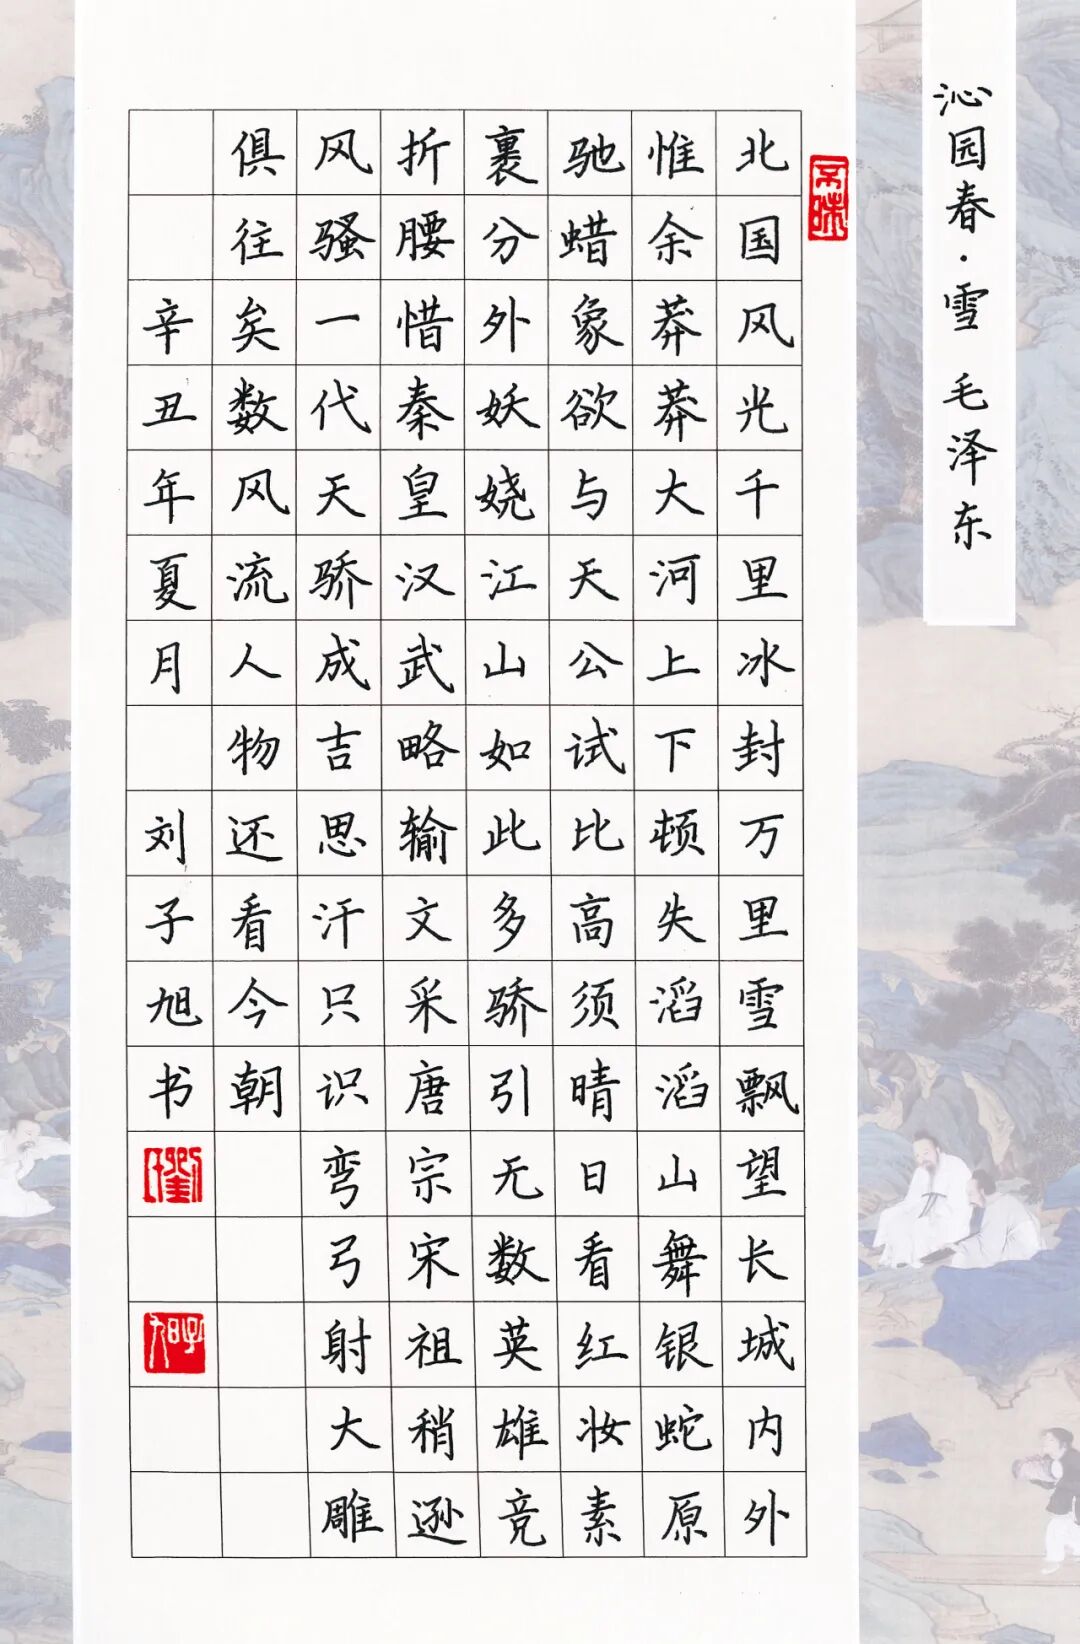 沁园春·雪 毛泽东
北国风光千里冰封万里雪飘望长城内外
惟余莽莽大河上下顿失滔滔山舞银蛇原
驰蜡象欲与天公试比高须晴日看红妆素
裹分外妖娆江山如此多骄引无数英雄竞
折腰惜秦皇汉武略输文采唐宗宋祖稍逊
风骚一代天骄成吉思汗只识弯弓射大雕
俱往矣数风流人物还看今朝
辛丑年夏月 刘子旭书